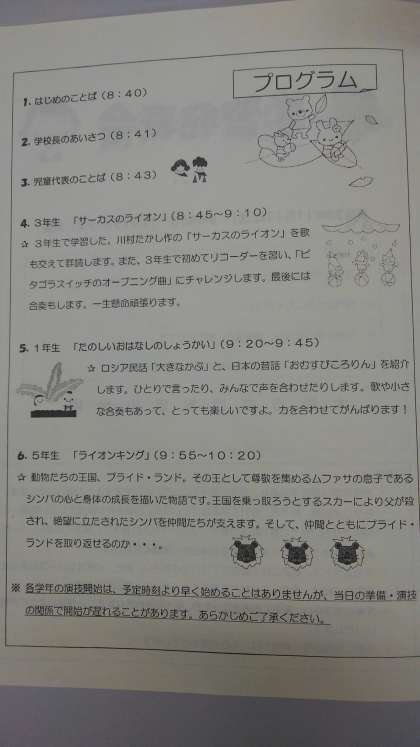 プログラム
1. はじめのことば（8：40）
2. 学校長のあいさつ（8：41）
3. 児童代表のことば（8：43）
4. 3年生　「サーカスのライオン」（8：45～9：10）
☆ 3年生で学習した、川村たかし作の「サーカスのライオン」を歌
も交えて群読します。また、3年生で初めてリコーダーを習い、「ピ
タゴラスイッチのオープニング曲」にチャレンジします。最後には
合奏もします。一生懸命頑張ります。
5. 1年生　「たのしいおはなしのしょうかい」（9：20～9：45）
☆ ロシア民話「大きなかぶ」と、日本の昔話「おむすびころりん」を紹介
します。ひとりで言ったり、みんなで声を合わせたりします。歌や小さ
な合奏もあって、とっても楽しいですよ。力を合わせてがんばります！
6. 5年生　「ライオンキング」（9：55～10：20）
☆ 動物たちの王国、プライド・ランド。その王として尊敬を集めるムファサの息子である
シンバの心と身体の成長を描いた物語です。王国を乗っ取ろうとするスカーにより父が殺
され、絶望に立たされたシンバを仲間たちが支えます。そして、仲間とともにプライド・
ランドを取り返せるのか・・・。
※ 各学年の演技開始は、予定時刻より早く始めることはありませんが、当日の準備・演技
の関係で開始が遅れることがあります。あらかじめご了承ください。